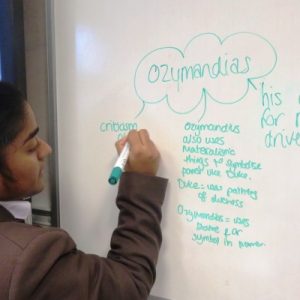 Ozymandias
criticism
Ozymandias
also uses
Materialistic
things to symbolise
power like Duke.
Duke = uses painting
of duchess
Ozymandias = uses
Statue for
symbol in power.
his
for
drive